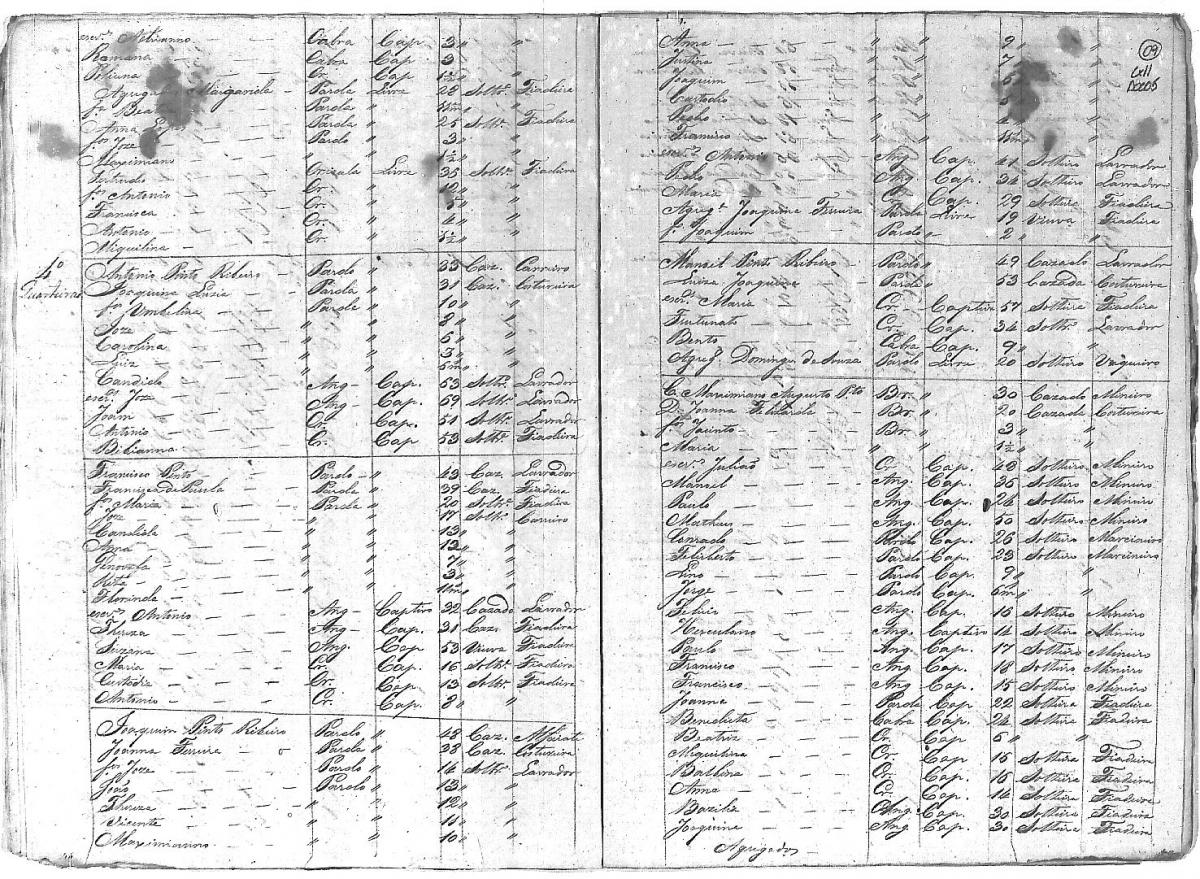 escr.os Adrianno - Cabra Cap 3 "
Romana - Cabra Cap 3 "
Cr. Cap "
Margarida - Parda Livre 28 Solt.ra Fiadeira
Parda "
Parda " 25 Solt.ra Fiadeira
f.os Joze - Pardo " 3 "
Maximiano " " 1½ "
Gertrudes Crioula Livre 35 Solt.ra Fiadeira
f.os Antonio - Cr. " 12 "
Francisca - Cr. " "
Antonio - Cr. " 4 "
Miquilina - Cr. "
4º
Quarteirão
Antonio Pinto Ribeiro - Pardo " 33 Caz. Carreiro
Joaquina Luzia - Parda " 31 Caz. Costureira
f.os Umbelina - Parda " 10 "
Joze - " " 8 "
Carolina " " 5 "
Luiz - " " 3 "
Candido " " "
escr.os Joze - Ang - Cap. 53 Solt.ro Lavrador
Joam - Ang - Cap. 59 Solt.ro Lavrador
Antonio - Cr. Cap. 51 Solt.ro Lavrador
Bibianna - Cr. Cap 53 Solt.ra Fiadeira
Francisco Pinto Pardo - " 43 Caz. Lavrador
Francisca de Paula Parda " 39 Caz. Fiadeira
f.os Maria - Parda " 20 Solt.ra Fiadeira
Joze - " " 17 Solt.ro Carreiro
Candida - " " 13 "
Anna - " " 12 "
Genoveva - " " 7 "
Rita - " " 3 "
Florinda - " " 11m "
escr.os Antonio - Ang - Captivo 32 Cazado Lavrador
Thereza - Ang - Cap. 31 Caz. Fiadeira
Suzana - Ang. Cap 53 Viuva Fiadeira
Maria - Cr. Cap. 16 Solt.ra Fiadeira
Custodia - Cr. Cap. 13 Solt.ra Fiadeira
Antonio - Cr. Cap. 8 "
Joaquim Pinto Ribeiro Pardo " 48 Caz.
Joanna Ferreira - Parda " 38 Caz. Costureira
f.os Joze - Pardo " 16 Solt.ro Lavrador
João - Pardo " 13 "
Thereza - " " 12 "
Vicente - " " 11 "
Maximianno - " " 10 "
09
Cx11
Anna - " " 9 "
Justina - " " 7 "
Joaquim - " "
Custodio - " "
Pedro - " " 4 "
Francisco - " " "
escr.os Antonio Ang Cap. 41 Solteiro Lavrador
Ang Cap. 34 Solteiro Lavrador
Maria - Cr. Cap. 29 Solteira Fiadeira
Agreg.a Joaquina Ferreira Parda Livre 19 Viuva Fiadeira
f.o Joaquim - Pardo " 2 "
Manoel Pinto Ribeiro - Pardo " 49 Cazado Lavrador
Luiza Joaquina - Parda " 53 Cazada Costureira
escr.os Maria - Cr. - Captiva 57 Solteira Fiadeira
Furtunato - Cr. Cap. 34 Solt.ro Lavrador
Bento - Cabra Cap. 9 "
Agreg. Doming.os de Souza Pardo Livre 20 Solteiro Vaqueiro
C. Maximiano Augusto P.to Br. " 30 Cazado Mineiro
D. Joanna Felizarda - Br. " 20 Cazada Costureira
f.os Jacinto - Br. " 3 "
Maria - " " 1½ "
escr.os Julião - Cr Cap 48 Solteiro Mineiro
Manoel - Ang Cap. 35 Solteiro Mineiro
Paulo - Ang Cap. 26 Solteiro Mineiro
Matheus - Ang. Cap. 50 Solteiro Mineiro
Conrado - Pardo Cap. 26 Solteiro Marcineiro
Feliberto - Pardo Cap. 23 Solteiro Marcineiro
Lino - Pardo Cap. 9 "
Jorge - Pardo Cap. 6m "
Felis - Ang. Cap. 16 Solteiro Mineiro
Herculano - Ang. Captivo 14 Solteiro Mineiro
Paulo - Ang. Cap. 17 Solteiro Mineiro
Francisco - Ang Cap. 18 Solteiro Mineiro
Francisco - Ang Cap. 15 Solteiro Mineiro
Joanna - Parda Cap. 22 Solteira Fiadeira
Benedicta - Cabra Cap. 24 Solteira Fiadeira
Beatriz - Cr. Cap 6 "
Miquilina - Cr. Cap 15 Solteira Fiadeira
Balbina - Cr. Cap. 15 Solteira Fiadeira
Anna - Cr. Cap. 14 Solteira Fiadeira
Bazilia - Ang. Cap. 30 Solteira Fiadeira
Joaquina - Ang Cap. 30 Solteira Fiadeira
Agregados -